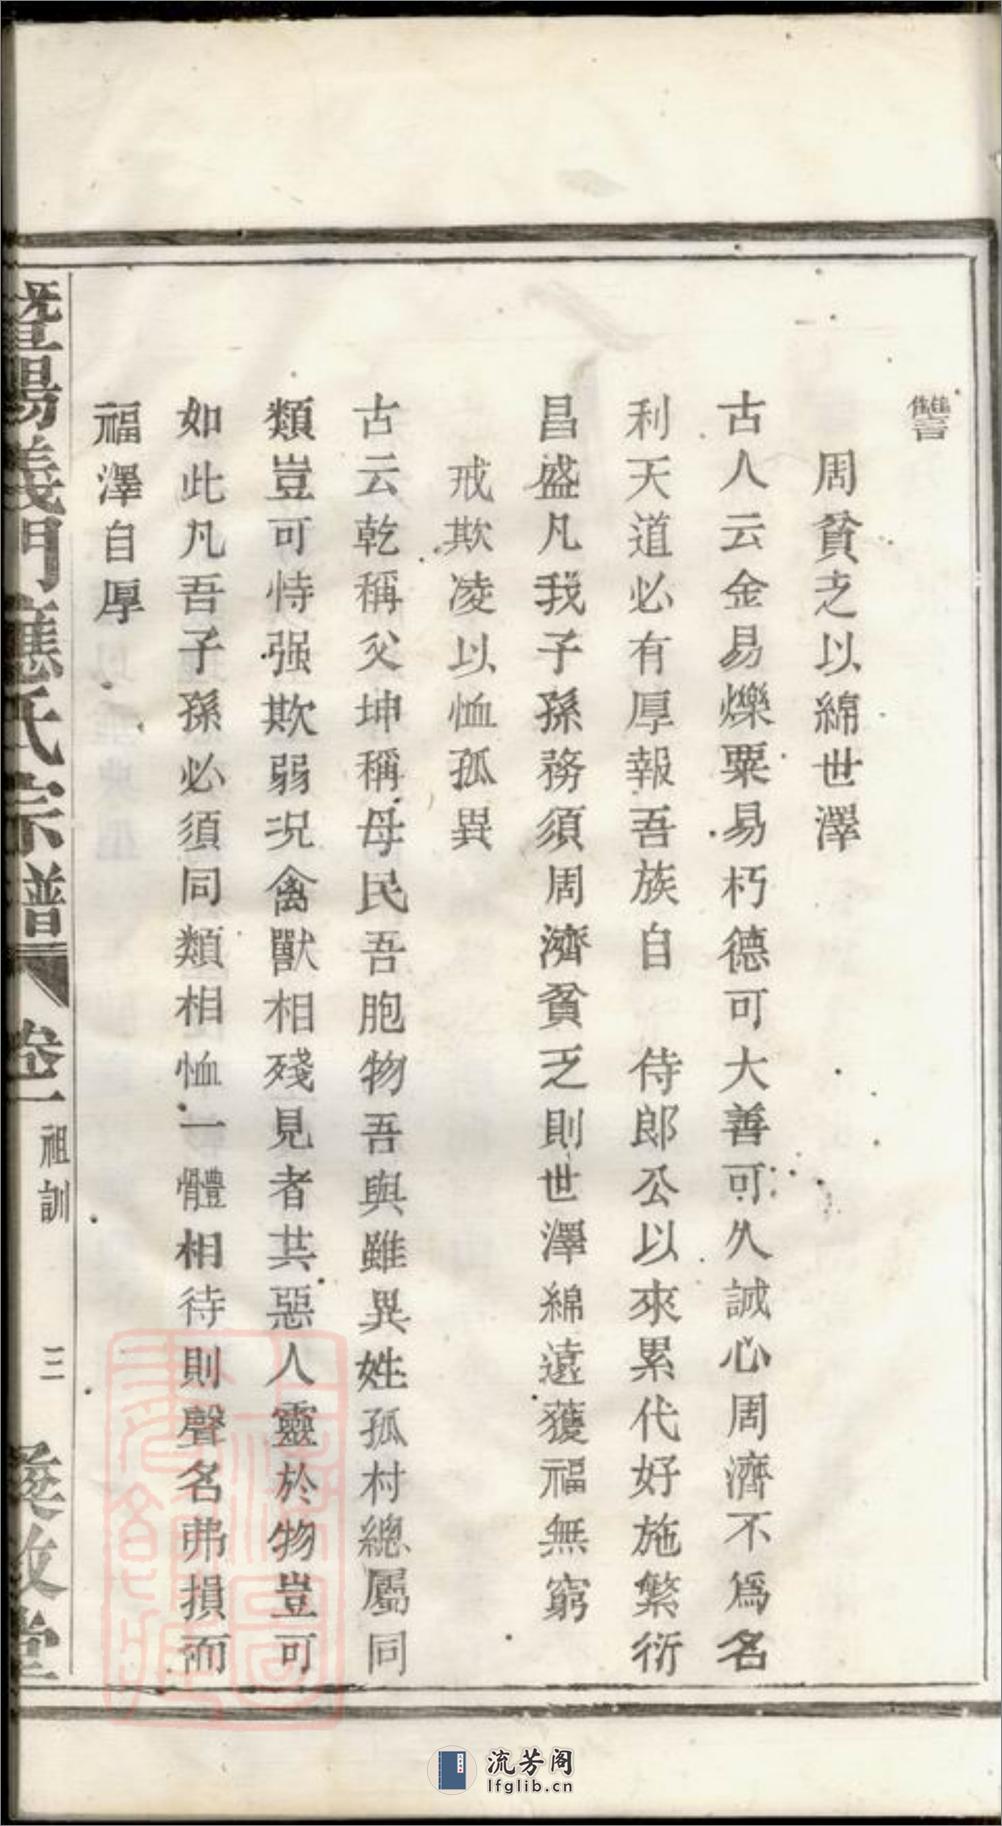 讐
周貧乏以綿世澤
古人云金易爍粟易朽德可大善可久誠心周濟不爲名
利天道必有厚報吾族自　侍郎公以來累代好施繁衍
昌盛凡我子孫務須周濟貧乏則世澤綿遠獲福無窮
戒欺凌以恤孤異
古云乾稱父坤稱母民吾胞物吾與雖異姓孤村總屬同
類豈可恃强欺弱况禽獸相殘見者共惡人靈於物豈可
如此凡吾子孫必須同類相恤一體相待則聲名弗損而
福澤自厚
暨陽義門應氏宗譜
卷一
祖訓
三
敦堂
流芳阁
lfglib.cn